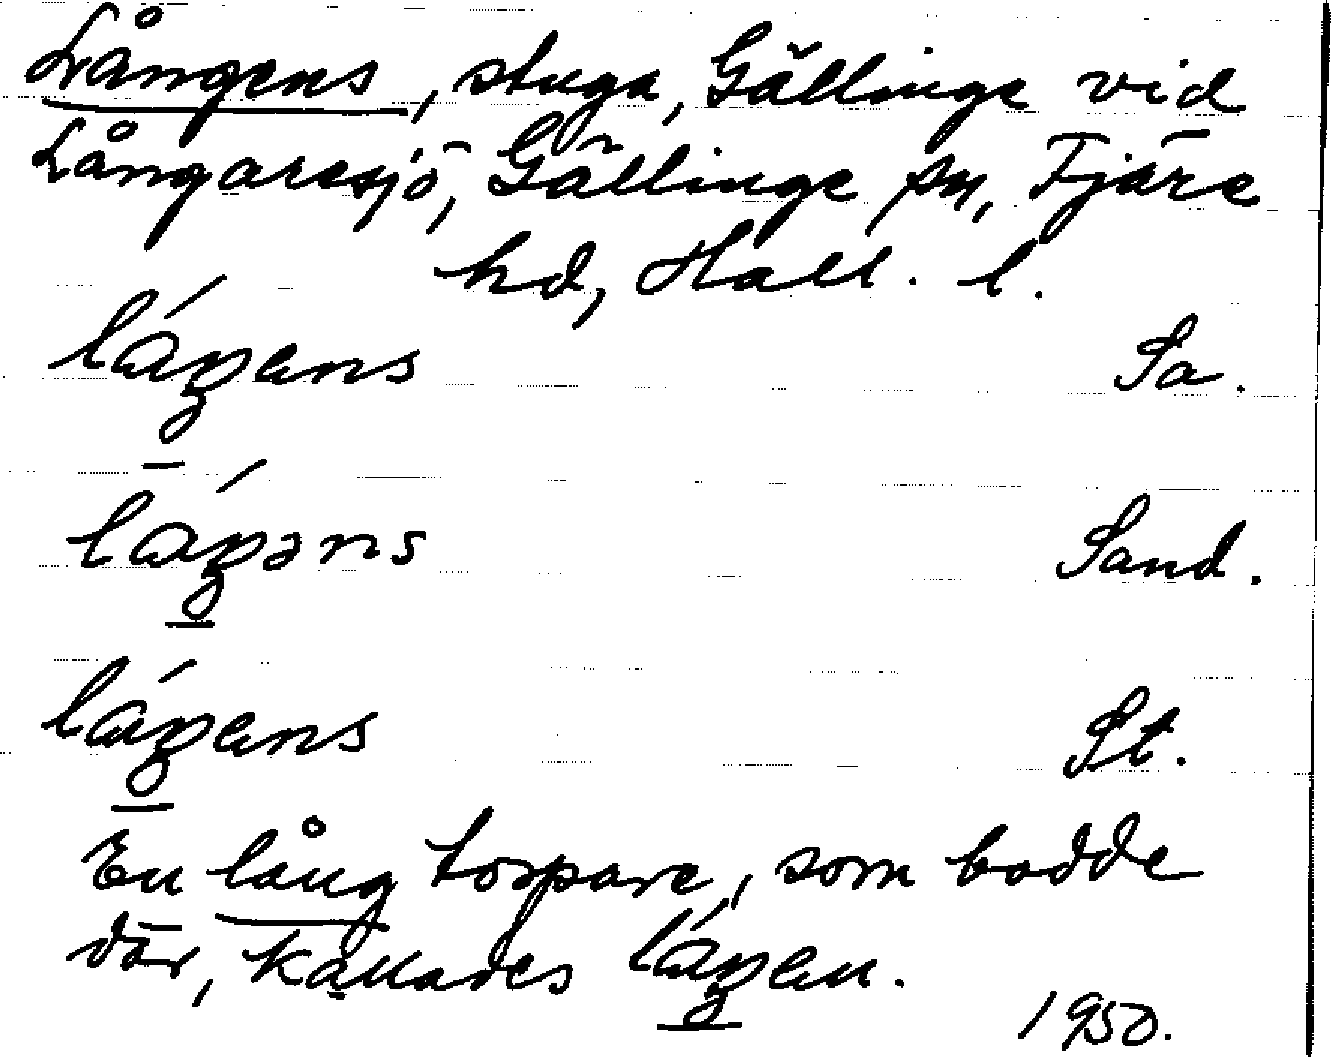 Långens, stuga, Gällinge vid
Långaresjö, Gällinge sn, Fjäre
hd, Hall. l.
Sa.
Sand.
St.
En lång torpare, som bodde
där, kallades
1950.